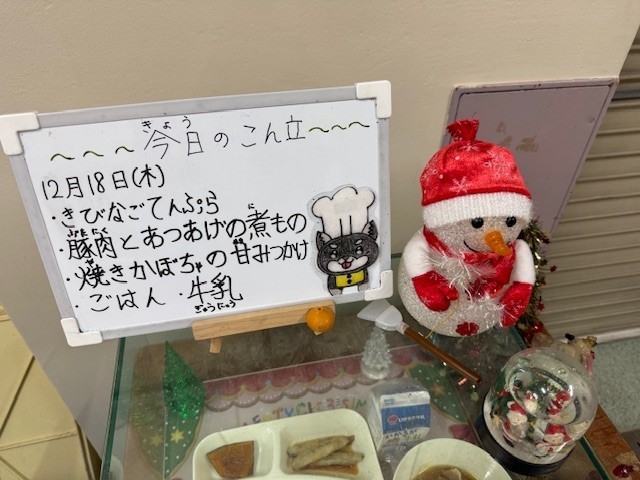 きょう
～～～今日のこん立～～～
12月18日(木)
・きびなごてんぷら
ぶたにく に
・豚肉とあつあげの煮もの
・焼きかぼちゃの甘みつかけ
・ごはん ・牛乳
ぎゅうにゅう